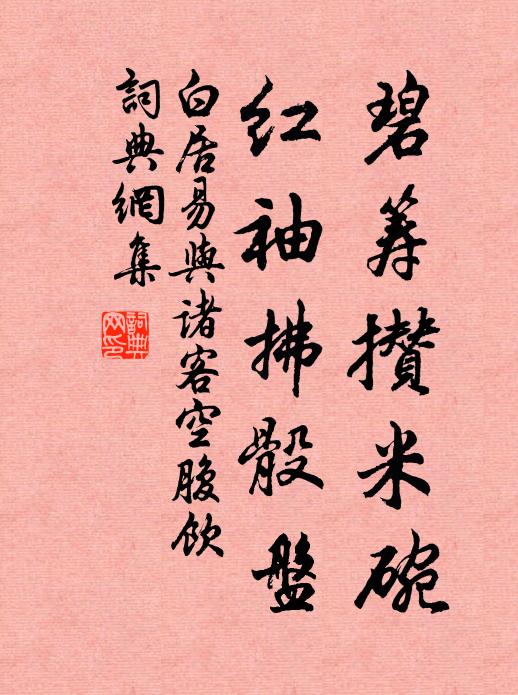 碧筹攅米碗
红袖拂骰盤
白居易與諸客空腹飲
詞典網集
詞典網印